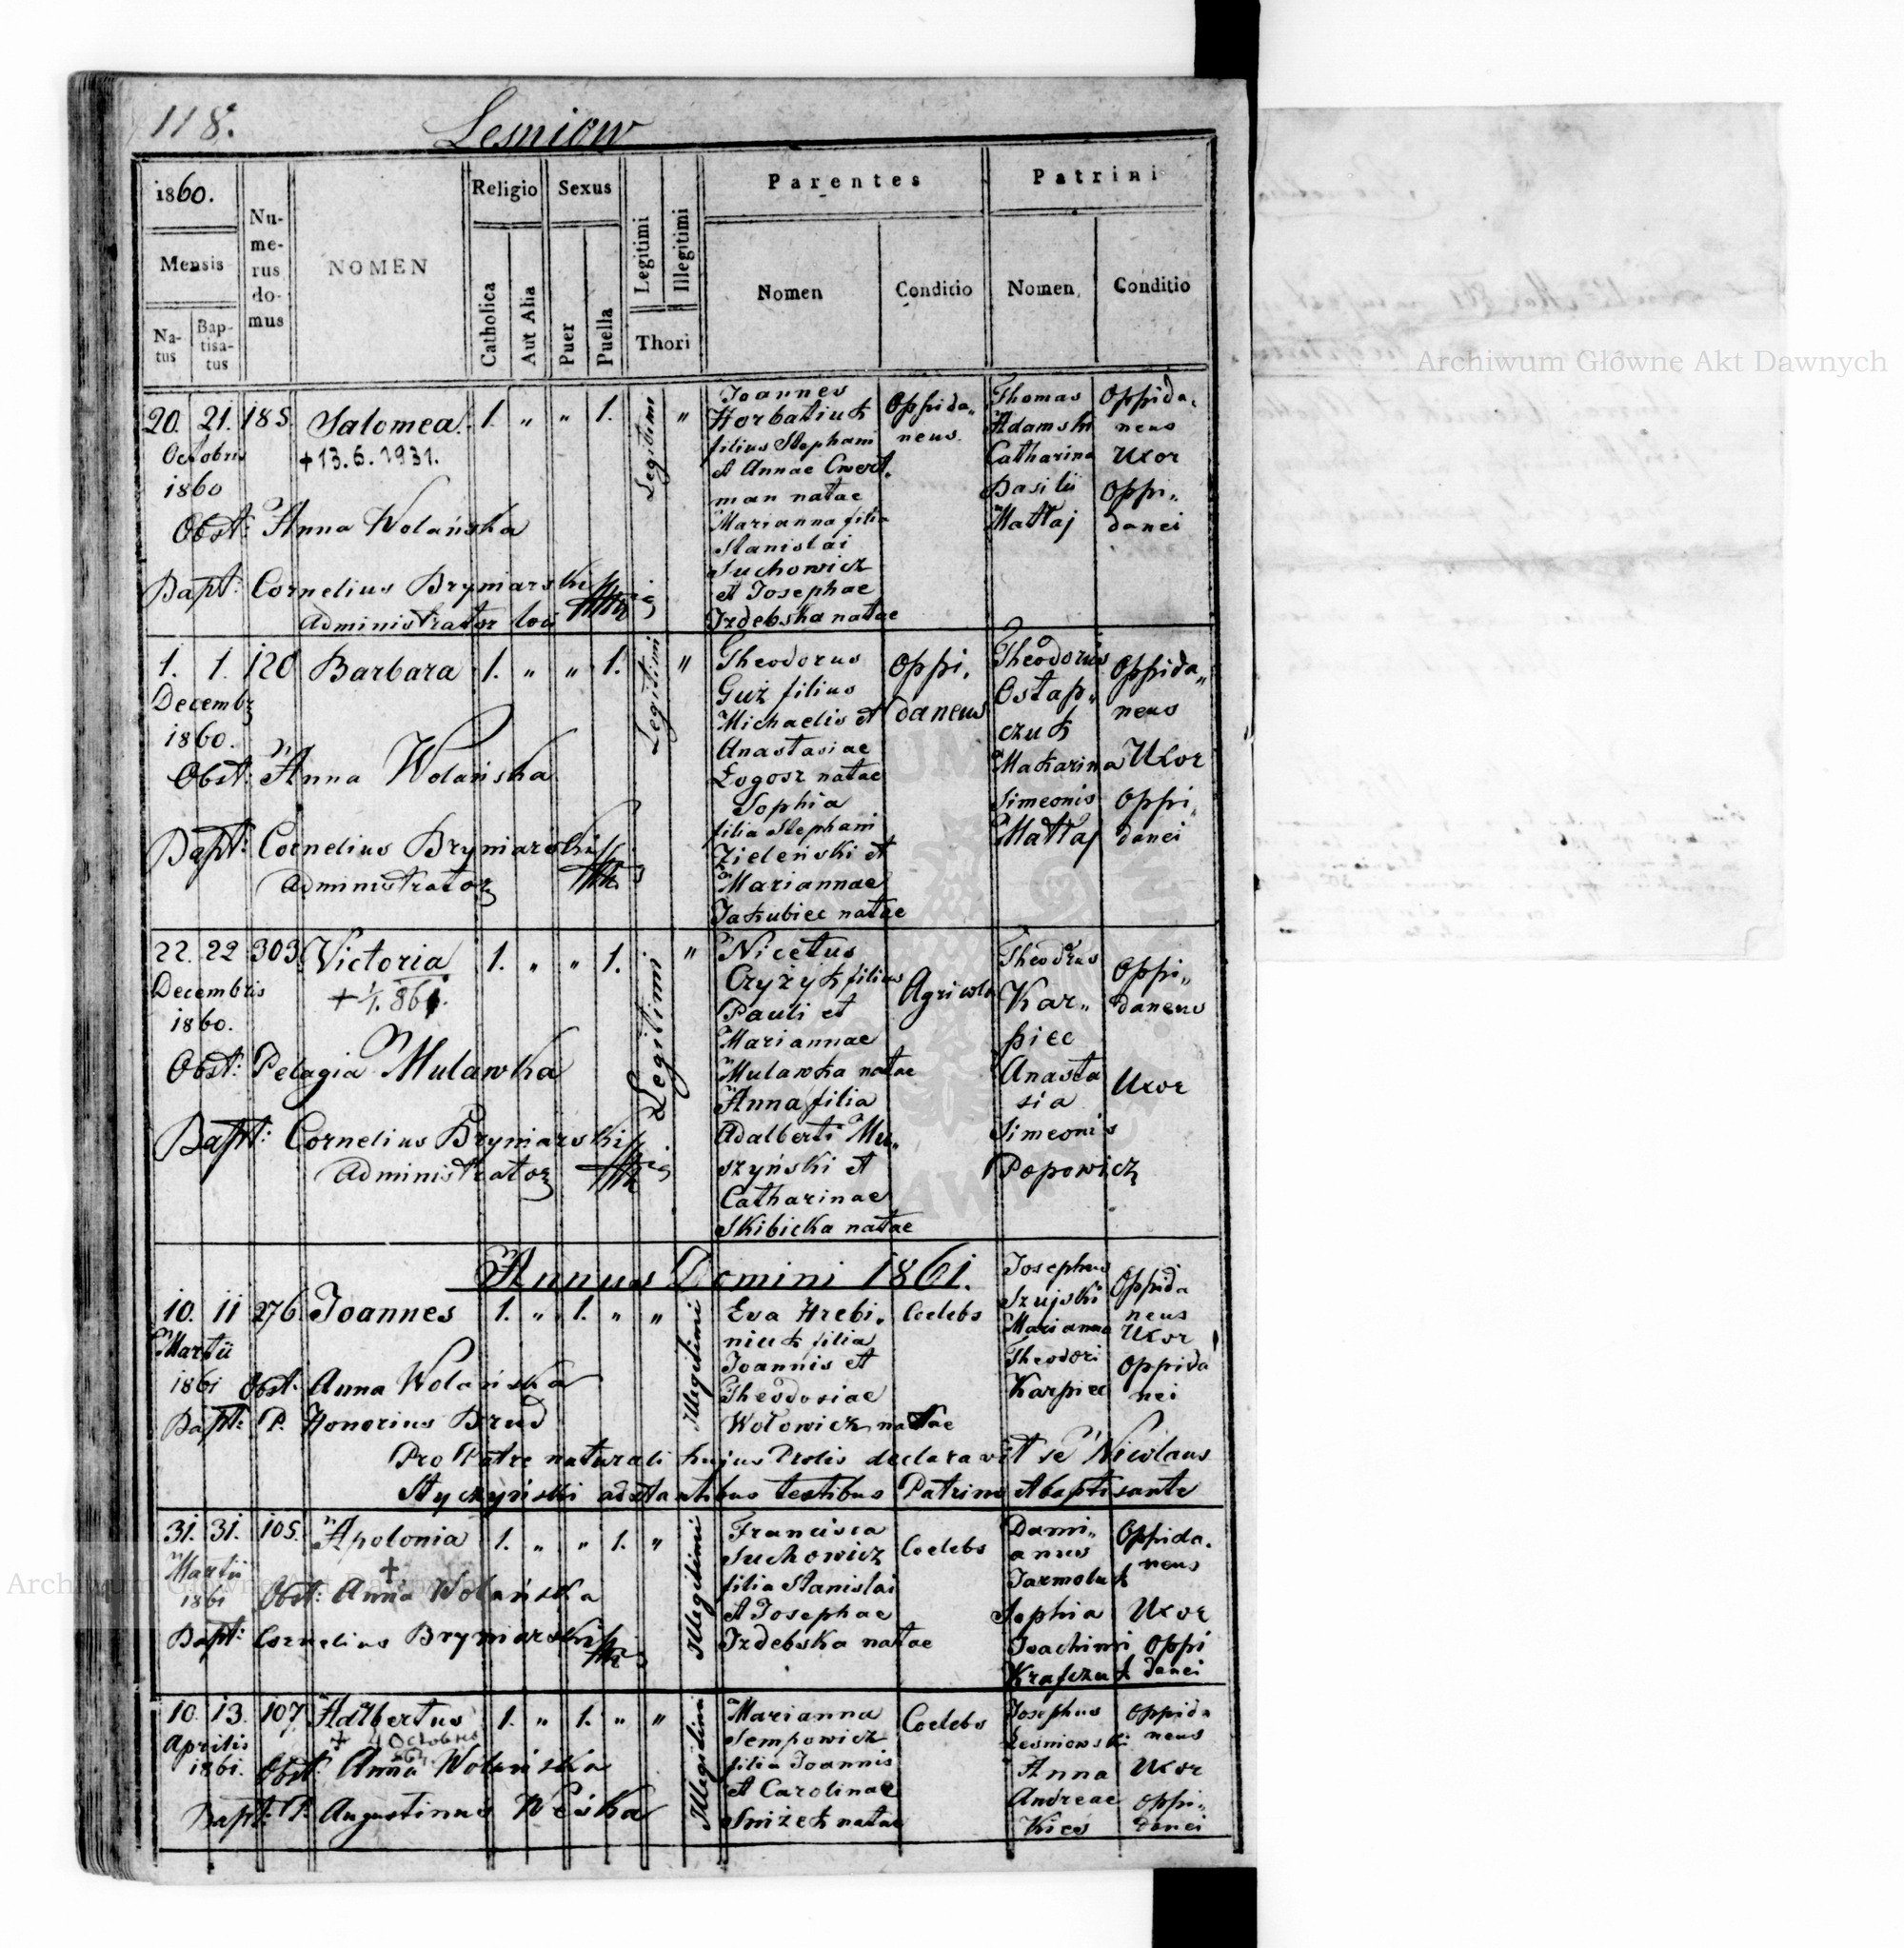 118.
Lesniow
1860.
Mensis
Na-
tus
Bap-
tisa-
tus
Nu-
me-
rus
do-
mus
NOMEN
Religio
Catholica
Aut Alia
Sexus
Puer
Puella
Legitimi
Illegitimi
Thori
Parentes
Nomen
Conditio
Patrini
Nomen
Conditio
20. 21. 185 Salomea. 1. " " 1. Legitimi "
Octobris
1860
+ 13.6.1931.
Obst: Anna Wolańska
Bapt: Cornelius Bryniarski
Administrator loci
Joannes
Horbatiuk
filius Stephani
et Annae Cwert,
man natae
Marianna filia
Stanislai
Suchowicz
et Josephae
Izdebska natae
Oppida,,
neus.
Thomas
Adamski
Catharina
Basilii
Mattaj
Oppida,
neus
Uxor
Oppi,,
danei
1. 1. 120 Barbara 1. " " 1. Legitimi "
Decembr
1860.
Obst: Anna Wolańska
Bapt: Cornelius Bryniarski
Administrator
Theodorus
Guz filius
Michaelis et
Anastasiae
Łogosz natae
Sophia
filia Stephani
Zieleński et
Mariannae
Jakubiec natae
Oppi,
daneus
Theodorus
Ostap,,
czuk
Makarina
Simeonis
Mattaj
Oppida,,
neus
Uxor
Oppi,
danei
22. 22 303 Victoria 1. " " 1. Legitimi "
Decembris
1860.
Obst: Pelagia Mulawka
Bapt: Cornelius Bryniarski
Administrator
Nicetus
Czyżyk filius
Pauli et
Mariannae
Mulawka natae
Anna filia
Adalberti Mu,,
szyński et
Catharinae
Skibicka natae
Agricola
Theodrus
Kar,,
piec
Anasta
sia
Simeonis
Popowicz
Oppi,,
daneus
Uxor
Annus Domini 1861.
10. 11 276 Joannes 1. " 1. " " Illegitimi
Martii
1861
Obst: Anna Wolańska
Bapt: P. Honorius Brud
Eva Hrebi,
niuk filia
Joannis et
Theodosiae
Wołowicz natae
Coelebs
Josephus
Szujski
Marianna
Theodori
Karpiec
Oppida
neus
Uxor
Oppida
nei
Pro Patre naturali hujus Prolis declaravit se Nicolaus
Styczyński adstantibus testibus Patrino et baptisante
31. 31. 105. Apolonia 1. " " 1. " Illegitimi
Martii
1861
+
Obst: Anna Wolańska
Bapt: Cornelius Bryniarski
Francisca
Suchowicz
filia Stanislai
et Josephae
Izdebska natae
Coelebs
Dami,,
anus
Jarmoluk
Sophia
Joachimi
Krafczuk
Oppida.
neus
Uxor
Oppi
danei
10. 13. 107. Adalbertus 1. " 1. " " Illegitimi
Aprilis
1861.
+ 4 Octobris
Obst: Anna Wolańska
Bapt: P. Augustinus Weska
Marianna
Sempowicz
filia Joannis
et Carolinae
Sniżek natae
Coelebs
Josephus
Lesniowski
Anna
Andreae
Kics
Oppida
neus
Uxor
Oppi,,
danei
Archiwum Główne Akt Dawnych
Archiwum Główne Akt Dawnych